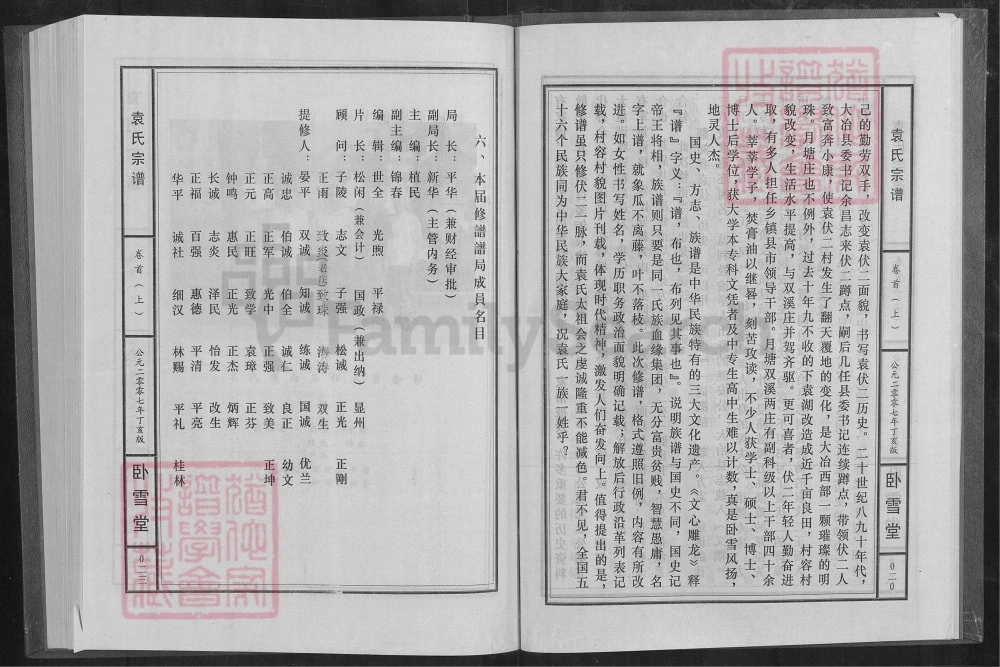 袁氏宗谱
卷首(上)
公元二零零七年丁亥版
卧雪堂
0二0
己的勤劳双手，改变袁伏二面貌，书写袁伏二历史。二十世纪八九十年代，
大冶县委书记余昌志来伏二蹲点，嗣后几任县委书记连续蹲点，带领伏二人
致富奔小康，使袁伏二村发生了翻天覆地的变化，是大冶西部一颗璀璨的明
珠。月塘庄也不例外，过去十年九不收的下袁湖改造成近千亩良田，村容村
貌改变，生活水平提高，与双溪庄并驾齐驱。更可喜者，伏二年轻人勤奋进
取，有多人担任乡镇县市领导干部。月塘双溪两庄有副科级以上干部四十余
人。莘莘学子，焚膏油以继晷，刻苦攻读，不少人获学士、硕士、博士、
博士后学位，获大学本专科文凭者及中专生高中生难以计数，真是卧雪风扬，
地灵人杰。
国史、方志、族谱是中华民族特有的三大文化遗产。《文心雕龙》释
『谱』字义：『谱，布也，布列见其事也』。说明族谱与国史不同，国史记
帝王将相，族谱则只要是同一氏族血缘集团，无分富贵贫贱，智慧愚庸，名
字上谱，就象瓜不离藤，叶不落枝。此次修谱，格式遵照旧例，内容有所改
进。如女性书写姓名，学历职务政治面貌明确记载；解放后行政沿革列表记
载，村容村貌图片刊载，体现时代精神，激发人们奋发向上。值得提出的是，
修谱虽只修伏二一脉，而袁氏太祖会之虔诚隆重不能减色。君不见，全国五
十六个民族同为中华民族大家庭，况袁氏一族一姓乎？
六、本届修谱谱局成员名目
局长：平华(兼财经审批)
副局长：新华(主管内务)
主编：植民
副主编：锦春
编辑：世全 光煦 平禄
片长：松闲(兼会计) 国政(兼出纳) 显州
顾问：子陵 志文 子强 松诚 正光 正剛
正雨 致珠 双生
提修人：晏平 双诚 知诚 练诚 国诚 优兰
诚忠 伯诚 伯全 诚仁 良正 幼文
正高 正军 光中 正强 致美 正坤
正元 正旺 致学 袁璋 正芬
钟鸣 惠民 正光 正杰 炳辉
长诚 志炎 泽民 怡发 改生
正福 百强 惠德 平清 平亮
华平 诚社 细汉 林赐 平礼 桂林
袁氏宗谱
卷首(上)
公元二零零七年丁亥版
卧雪堂
0二三